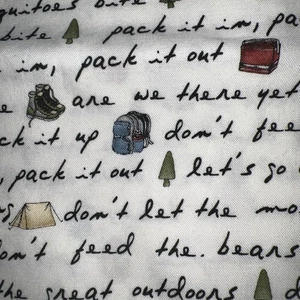 quitoes bite
bite pack it in, pa
in, pack it out
e are we there yet
ck it up don't fee
, pack it out let's go
g don't let the mo
on't feed the. bears
the great outdoors d